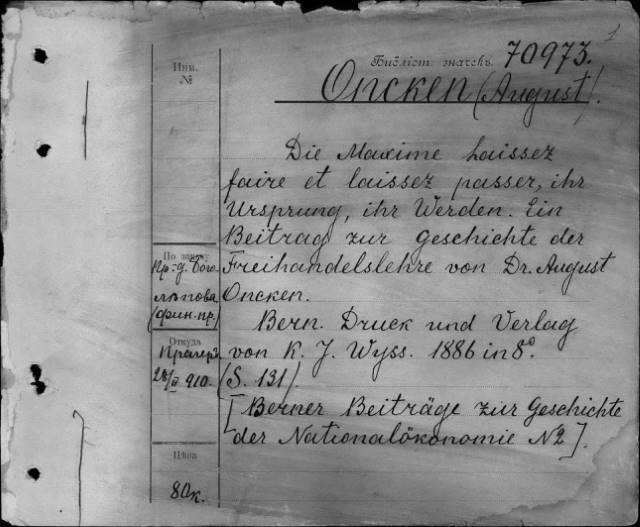 1
Библіот. значекъ 70973.
Oncken (August).
Инв.
№
Die Maxime Laissez
faire et laissez passer, ihr
Ursprung, ihr Werden. Ein
Beitrag zur Geschichte der
Freihandelslehre von Dr. August
Oncken.
Bern. Druck und Verlag
von K. J. Wyss. 1886 in 8°.
(S. 131).
[Berner Beiträge zur Geschichte
der Nationalökonomie №2].
По заказу
Пр.-д. Бого-
лѣпова
(фин. пр.)
Откуда
Прагеръ
910.
Цѣна
80к.